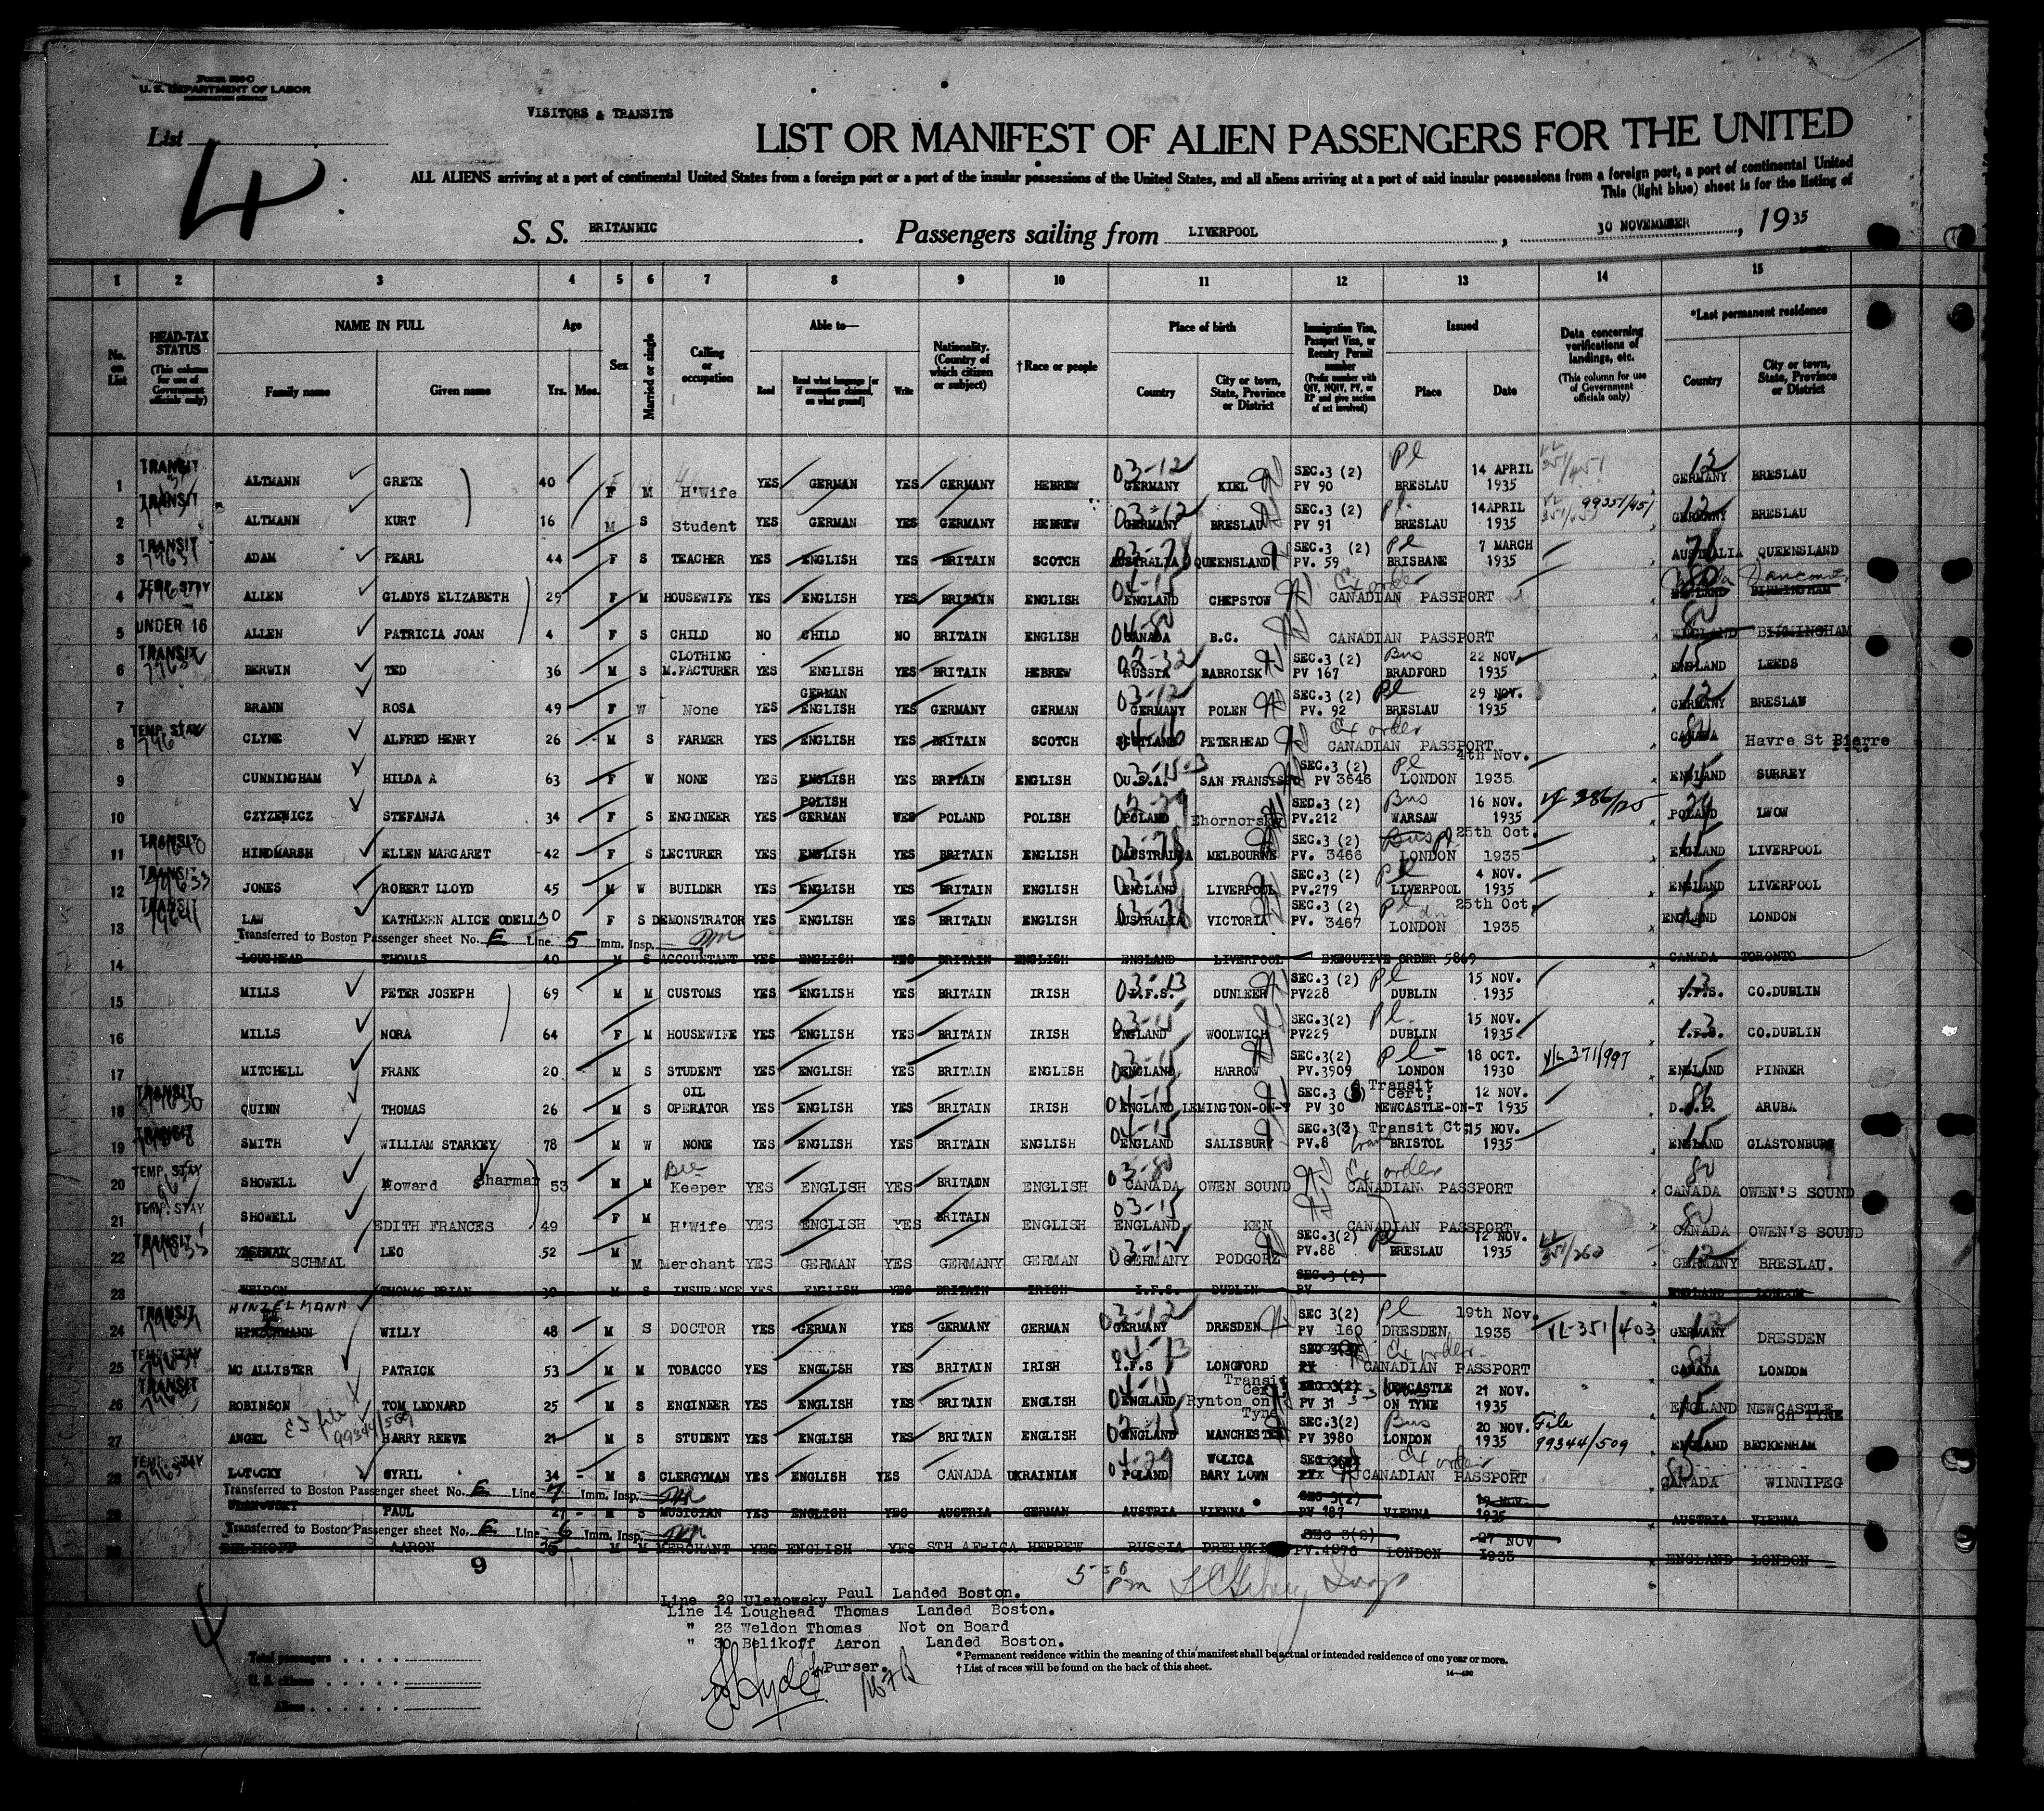 Form 500 C
U. S. DEPARTMENT OF LABOR
IMMIGRATION SERVICE
VISITORS & TRANSITS
List 4
LIST OR MANIFEST OF ALIEN PASSENGERS FOR THE UNITED
ALL ALIENS arriving at a port of continental United States from a foreign port or a port of the insular possessions of the United States, and all aliens arriving at a port of said insular possessions from a foreign port, a port of continental United
This (light blue) sheet is for the listing of
S. S. BRITANNIC Passengers sailing from LIVERPOOL, 30 NOVEMMBER, 1935
1 2 3 4 5 6 7 8 9 10 11 12 13 14 15
No. on List
HEAD-TAX STATUS (This column for use of Government officials only)
NAME IN FULL Family name Given name
Age Yrs. Mos.
Sex
Married or single
Calling or occupation
Able to— Read Read what language [or if exemption claimed, on what ground] Write
Nationality. (Country of which citizen or subject)
†Race or people
Place of birth Country City or town, State, Province or District
Immigration Visa, Passport Visa, or Reentry Permit number (Prefix number with QIV, NQIV, PV, or RP and give section of act involved)
Issued Place Date
Data concerning verifications of landings, etc. (This column for use of Government officials only)
*Last permanent residence Country City or town, State, Province or District
1 TRANSIT ALTMANN GRETE 40 F M H'Wife YES GERMAN YES GERMANY HEBREW 03-12 GERMANY KIEL SEC.3 (2) PV 90 Pl BRESLAU 14 APRIL 1935 12 GERMANY BRESLAU
2 TRANSIT ALTMANN KURT 16 M S Student YES GERMAN YES GERMANY HEBREW 03-12 GERMANY BRESLAU SEC.3 (2) PV 91 Pl. BRESLAU 14APRIL 1935 99351/451 12 GERMANY BRESLAU
3 TRANSIT ADAM PEARL 44 F S TEACHER YES ENGLISH YES BRITAIN SCOTCH 03-78 AUSTRALIA QUEENSLAND SEC.3 (2) PV. 59 Pl BRISBANE 7 MARCH 1935 AUSTRALIA QUEENSLAND
4 TEMP STAY ALLEN GLADYS ELIZABETH 29 F M HOUSEWIFE YES ENGLISH YES BRITAIN ENGLISH 04-15 ENGLAND CHEPSTOW Ex order CANADIAN PASSPORT 80 ENGLAND BIRMINGHAM
5 UNDER 16 ALLEN PATRICIA JOAN 4 F S CHILD NO CHILD NO BRITAIN ENGLISH 04-80 CANADA B.C. CANADIAN PASSPORT 80 ENGLAND BIRMINGHAM
6 TRANSIT BERWIN TED 36 M S CLOTHING M.FACTURER YES ENGLISH YES BRITAIN HEBREW 02-32 RUSSIA BABROISK SEC.3 (2) PV 167 Bus BRADFORD 22 NOV. 1935 15 ENGLAND LEEDS
7 BRANN ROSA 49 F W None YES GERMAN ENGLISH YES GERMANY GERMAN 03-12 GERMANY POLEN SEC.3 (2) PV. 92 Pl BRESLAU 29 NOV. 1935 12 GERMANY BRESLAU
8 TEMP. STAY CLYNE ALFRED HENRY 26 M S FARMER YES ENGLISH YES BRITAIN SCOTCH 04-16 SCOTLAND PETERHEAD Ex order CANADIAN PASSPORT 80 CANADA Havre St Pierre
9 CUNNINGHAM HILDA A 63 F W NONE YES ENGLISH YES BRITAIN ENGLISH U.S.A. SAN FRANSISCO SEC.3 (2) PV 3646 Pl LONDON 4th Nov. 1935 15 ENGLAND SURREY
10 CZYZEWICZ STEFANJA 34 F S ENGINEER YES POLISH GERMAN YES POLAND POLISH 02-29 POLAND Ehornorska SEC.3 (2) PV.212 Bus WARSAW 16 NOV. 1935 386/125 29 POLAND LWOW
11 TRANSIT HINDMARSH ELLEN MARGARET 42 F S LECTURER YES ENGLISH YES BRITAIN ENGLISH 03-78 AUSTRALIA MELBOURNE SEC.3 (2) PV. 3466 Bus Pl LONDON 25th Oct. 1935 15 ENGLAND LIVERPOOL
12 TRANSIT 79633 JONES ROBERT LLOYD 45 M W BUILDER YES ENGLISH YES BRITAIN ENGLISH 03-15 ENGLAND LIVERPOOL SEC.3 (2) PV.279 Pl LIVERPOOL 4 NOV. 1935 15 ENGLAND LIVERPOOL
13 TRANSIT LAW KATHLEEN ALICE ODELL 30 F S DEMONSTRATOR YES ENGLISH YES BRITAIN ENGLISH 03-78 AUSTRALIA VICTORIA SEC.3 (2) PV. 3467 Pl LONDON 25th Oct. 1935 15 ENGLAND LONDON
Transferred to Boston Passenger sheet No. E Line 5 Imm. Insp.
14 LOUGHEAD THOMAS 40 M S ACCOUNTANT YES ENGLISH YES BRITAIN ENGLISH ENGLAND LIVERPOOL EXECUTIVE ORDER 5869 CANADA TORONTO
15 MILLS PETER JOSEPH 69 M M CUSTOMS YES ENGLISH YES BRITAIN IRISH 03-13 I.F.S. DUNLEER SEC.3 (2) PV228 Pl DUBLIN 15 NOV. 1935 13 I.F.S. CO.DUBLIN
16 MILLS NORA 64 F M HOUSEWIFE YES ENGLISH YES BRITAIN IRISH 03-15 ENGLAND WOOLWICH SEC.3(2) PV229 Pl. DUBLIN 15 NOV. 1935 13 I.F.S. CO.DUBLIN
17 MITCHELL FRANK 20 M S STUDENT YES ENGLISH YES BRITAIN ENGLISH 03-15 ENGLAND HARROW SEC.3(2) PV.3909 Pl LONDON 18 OCT. 1930 V/L 371/997 15 ENGLAND PINNER
18 TRANSIT 79630 QUINN THOMAS 26 M S OIL OPERATOR YES ENGLISH YES BRITAIN IRISH 04-15 ENGLAND LEMINGTON-ON-T SEC.3 (3) Transit Cert; PV 30 NEWCASTLE-ON-T 12 NOV. 1935 86 ARUBA
19 TRANSIT SMITH WILLIAM STARKEY 78 M W NONE YES ENGLISH YES BRITAIN ENGLISH 04-15 ENGLAND SALISBURY SEC.3(3) Transit Ct; PV.8 BRISTOL 15 NOV. 1935 15 ENGLAND GLASTONBURY
20 TEMP. STAY SHOWELL Howard Sharman 53 M M Bee Keeper YES ENGLISH YES BRITAIN ENGLISH 03-80 CANADA OWEN SOUND Ex order CANADIAN PASSPORT 80 CANADA OWEN'S SOUND
21 TEMP. STAY SHOWELL EDITH FRANCES 49 F M H'Wife YES ENGLISH YES BRITAIN ENGLISH 03-15 ENGLAND KEN CANADIAN PASSPORT 80 CANADA OWEN'S SOUND
22 TRANSIT SCHMAL LEO 52 M M Merchant YES GERMAN YES GERMANY GERMAN 03-12 GERMANY PODGORZ SEC.3(2) PV.88 Pl BRESLAU 12 NOV. 1935 351/262 12 GERMANY BRESLAU.
23 WELDON THOMAS BRIAN 30 M S INSURANCE YES ENGLISH YES BRITAIN IRISH I.F.S. DUBLIN SEC.3 (2) PV ENGLAND LONDON
24 TRANSIT HINZELMANN WILLY 48 M S DOCTOR YES GERMAN YES GERMANY GERMAN 03-12 GERMANY DRESDEN SEC 3(2) PV 160 Pl DRESDEN 19th Nov. 1935 VL-351/403 12 GERMANY DRESDEN
25 TEMP. STAY MC ALLISTER PATRICK 53 M M TOBACCO YES ENGLISH YES BRITAIN IRISH 04-13 I.F.S LONGFORD Ex order CANADIAN PASSPORT 80 CANADA LONDON
26 TRANSIT ROBINSON TOM LEONARD 25 M S ENGINEER YES ENGLISH YES BRITAIN ENGLISH 04-15 ENGLAND Rynton on Tyne Transit Cer SEC 3(2) PV 31 NEWCASTLE ON TYNE 21 NOV. 1935 15 ENGLAND NEWCASTLE on TYNE
27 ANGEL 99344/509 HARRY REEVE 21 M S STUDENT YES ENGLISH YES BRITAIN ENGLISH ENGLAND MANCHESTER SEC.3(2) PV 3980 Bus LONDON 20 NOV. 1935 File 99344/509 15 ENGLAND BECKENHAM
28 TEMP. STAY LOTOCKY CYRIL 34 M S CLERGYMAN YES ENGLISH YES CANADA UKRAINIAN 04-29 POLAND WOLICA BARY LOWN Ex order CANADIAN PASSPORT 80 CANADA WINNIPEG
Transferred to Boston Passenger sheet No. E Line 7 Imm. Insp.
29 ULANOWSKY PAUL 27 M S MUSICIAN YES ENGLISH YES AUSTRIA GERMAN AUSTRIA VIENNA SEC 3(2) PV 187 VIENNA 19 NOV. 1935 AUSTRIA VIENNA
Transferred to Boston Passenger sheet No. E Line 6 Imm. Insp.
30 BELIKOFF AARON 36 M M MERCHANT YES ENGLISH YES STH AFRICA HEBREW RUSSIA PRELUKI SEC 3(2) PV.4076 LONDON 27 NOV 1935 ENGLAND LONDON
9
Line 29 Ulanowsky Paul Landed Boston.
Line 14 Loughead Thomas Landed Boston.
" 23 Weldon Thomas Not on Board
" 30 Belikoff Aaron Landed Boston.
Purser.
Total passengers
U. S. citizens
Aliens
* Permanent residence within the meaning of this manifest shall be actual or intended residence of one year or more.
† List of races will be found on the back of this sheet.
14—430